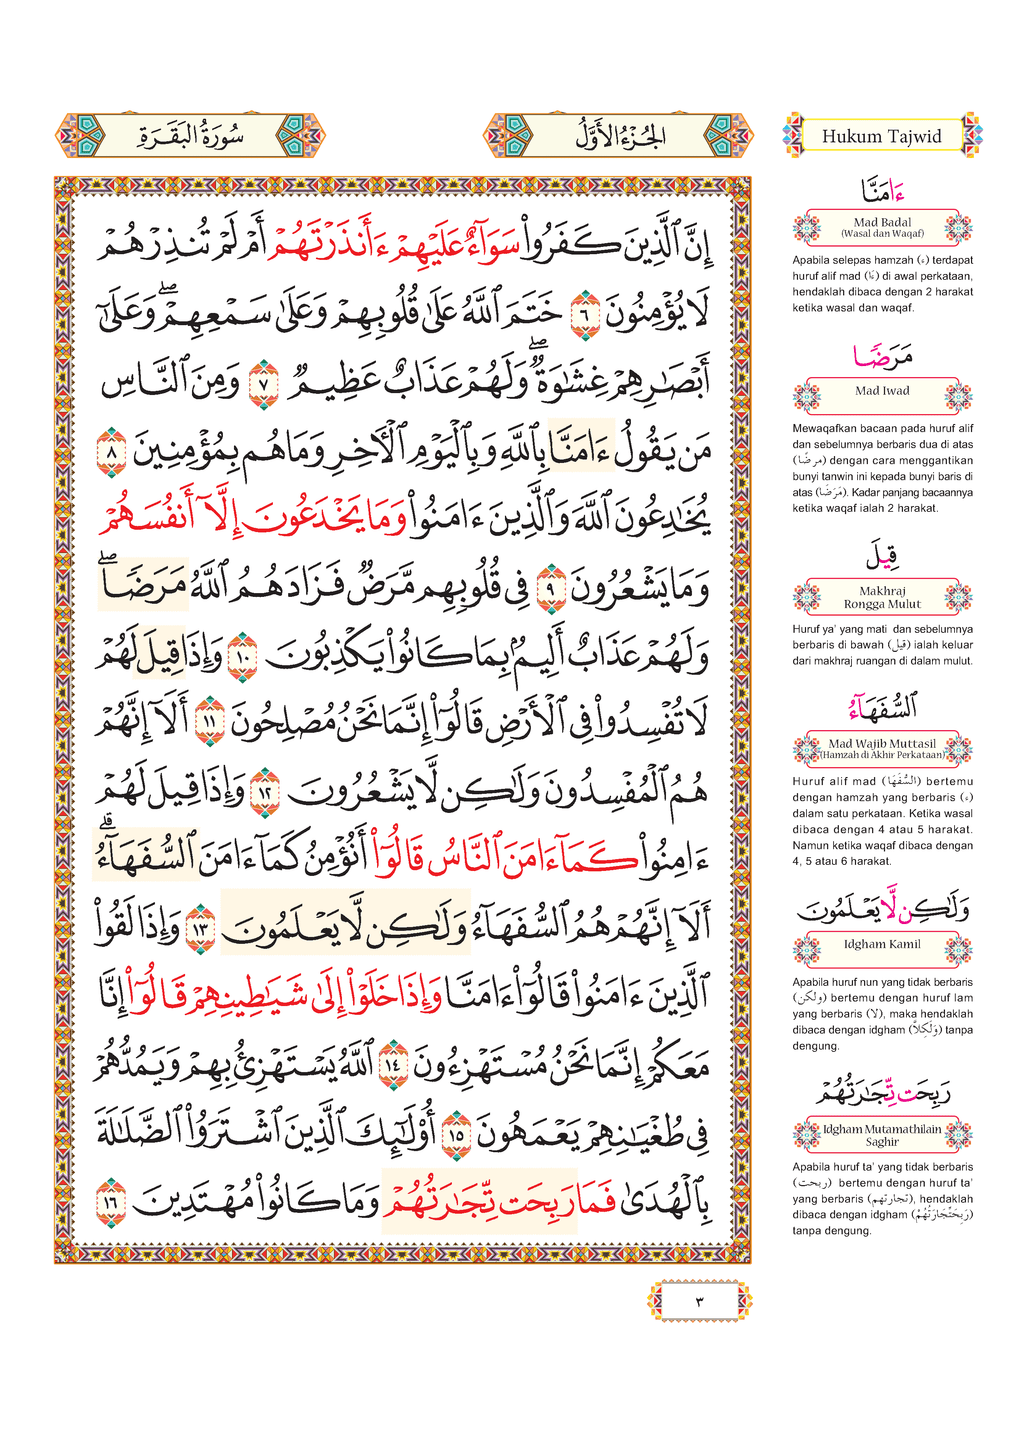 سُورَةُ البَقَرَةِ
الجُزْءُ الأَوَّلُ
إِنَّ ٱلَّذِينَ كَفَرُوا۟ سَوَآءٌ عَلَيْهِمْ ءَأَنذَرْتَهُمْ أَمْ لَمْ تُنذِرْهُمْ
لَا يُؤْمِنُونَ ٦ خَتَمَ ٱللَّهُ عَلَىٰ قُلُوبِهِمْ وَعَلَىٰ سَمْعِهِمْ ۖ وَعَلَىٰٓ
أَبْصَٰرِهِمْ غِشَٰوَةٌ ۖ وَلَهُمْ عَذَابٌ عَظِيمٌ ٧ وَمِنَ ٱلنَّاسِ
مَن يَقُولُ ءَامَنَّا بِٱللَّهِ وَبِٱلْيَوْمِ ٱلْـَٔاخِرِ وَمَا هُم بِمُؤْمِنِينَ ٨
يُخَٰدِعُونَ ٱللَّهَ وَٱلَّذِينَ ءَامَنُوا۟ وَمَا يَخْدَعُونَ إِلَّآ أَنفُسَهُمْ
وَمَا يَشْعُرُونَ ٩ فِى قُلُوبِهِم مَّرَضٌ فَزَادَهُمُ ٱللَّهُ مَرَضًا ۖ
وَلَهُمْ عَذَابٌ أَلِيمٌۢ بِمَا كَانُوا۟ يَكْذِبُونَ ١٠ وَإِذَا قِيلَ لَهُمْ
لَا تُفْسِدُوا۟ فِى ٱلْأَرْضِ قَالُوٓا۟ إِنَّمَا نَحْنُ مُصْلِحُونَ ١١ أَلَآ إِنَّهُمْ
هُمُ ٱلْمُفْسِدُونَ وَلَٰكِن لَّا يَشْعُرُونَ ١٢ وَإِذَا قِيلَ لَهُمْ
ءَامِنُوا۟ كَمَآ ءَامَنَ ٱلنَّاسُ قَالُوٓا۟ أَنُؤْمِنُ كَمَآ ءَامَنَ ٱلسُّفَهَآءُ ۗ
أَلَآ إِنَّهُمْ هُمُ ٱلسُّفَهَآءُ وَلَٰكِن لَّا يَعْلَمُونَ ١٣ وَإِذَا لَقُوا۟
ٱلَّذِينَ ءَامَنُوا۟ قَالُوٓا۟ ءَامَنَّا وَإِذَا خَلَوْا۟ إِلَىٰ شَيَٰطِينِهِمْ قَالُوٓا۟ إِنَّا
مَعَكُمْ إِنَّمَا نَحْنُ مُسْتَهْزِءُونَ ١٤ ٱللَّهُ يَسْتَهْزِئُ بِهِمْ وَيَمُدُّهُمْ
فِى طُغْيَٰنِهِمْ يَعْمَهُونَ ١٥ أُو۟لَٰٓئِكَ ٱلَّذِينَ ٱشْتَرَوُا۟ ٱلضَّلَٰلَةَ
بِٱلْهُدَىٰ فَمَا رَبِحَت تِّجَٰرَتُهُمْ وَمَا كَانُوا۟ مُهْتَدِينَ ١٦
٣
Hukum Tajwid
ءَامَنَّا
Mad Badal
(Wasal dan Waqaf)
Apabila selepas hamzah (ء) terdapat
huruf alif mad (ءَا) di awal perkataan,
hendaklah dibaca dengan 2 harakat
ketika wasal dan waqaf.
مَرَضًا
Mad Iwad
Mewaqafkan bacaan pada huruf alif
dan sebelumnya berbaris dua di atas
(مرضًا) dengan cara menggantikan
bunyi tanwin ini kepada bunyi baris di
atas (مَرَضَا). Kadar panjang bacaannya
ketika waqaf ialah 2 harakat.
قِيلَ
Makhraj
Rongga Mulut
Huruf ya' yang mati dan sebelumnya
berbaris di bawah (قيل) ialah keluar
dari makhraj ruangan di dalam mulut.
ٱلسُّفَهَآءُ
Mad Wajib Muttasil
(Hamzah di Akhir Perkataan)
Huruf alif mad (السُّفَهَا) bertemu
dengan hamzah yang berbaris (ء)
dalam satu perkataan. Ketika wasal
dibaca dengan 4 atau 5 harakat.
Namun ketika waqaf dibaca dengan
4, 5 atau 6 harakat.
وَلَٰكِن لَّا يَعْلَمُونَ
Idgham Kamil
Apabila huruf nun yang tidak berbaris
(ولكن) bertemu dengan huruf lam
yang berbaris (لا), maka hendaklah
dibaca dengan idgham (وَلَٰكِلَّا) tanpa
dengung.
رَبِحَت تِّجَٰرَتُهُمْ
Idgham Mutamathilain
Saghir
Apabila huruf ta' yang tidak berbaris
(ربحت) bertemu dengan huruf ta'
yang berbaris (تجارتهم), hendaklah
dibaca dengan idgham (رَبِحَتِّجَارَتُهُمْ)
tanpa dengung.